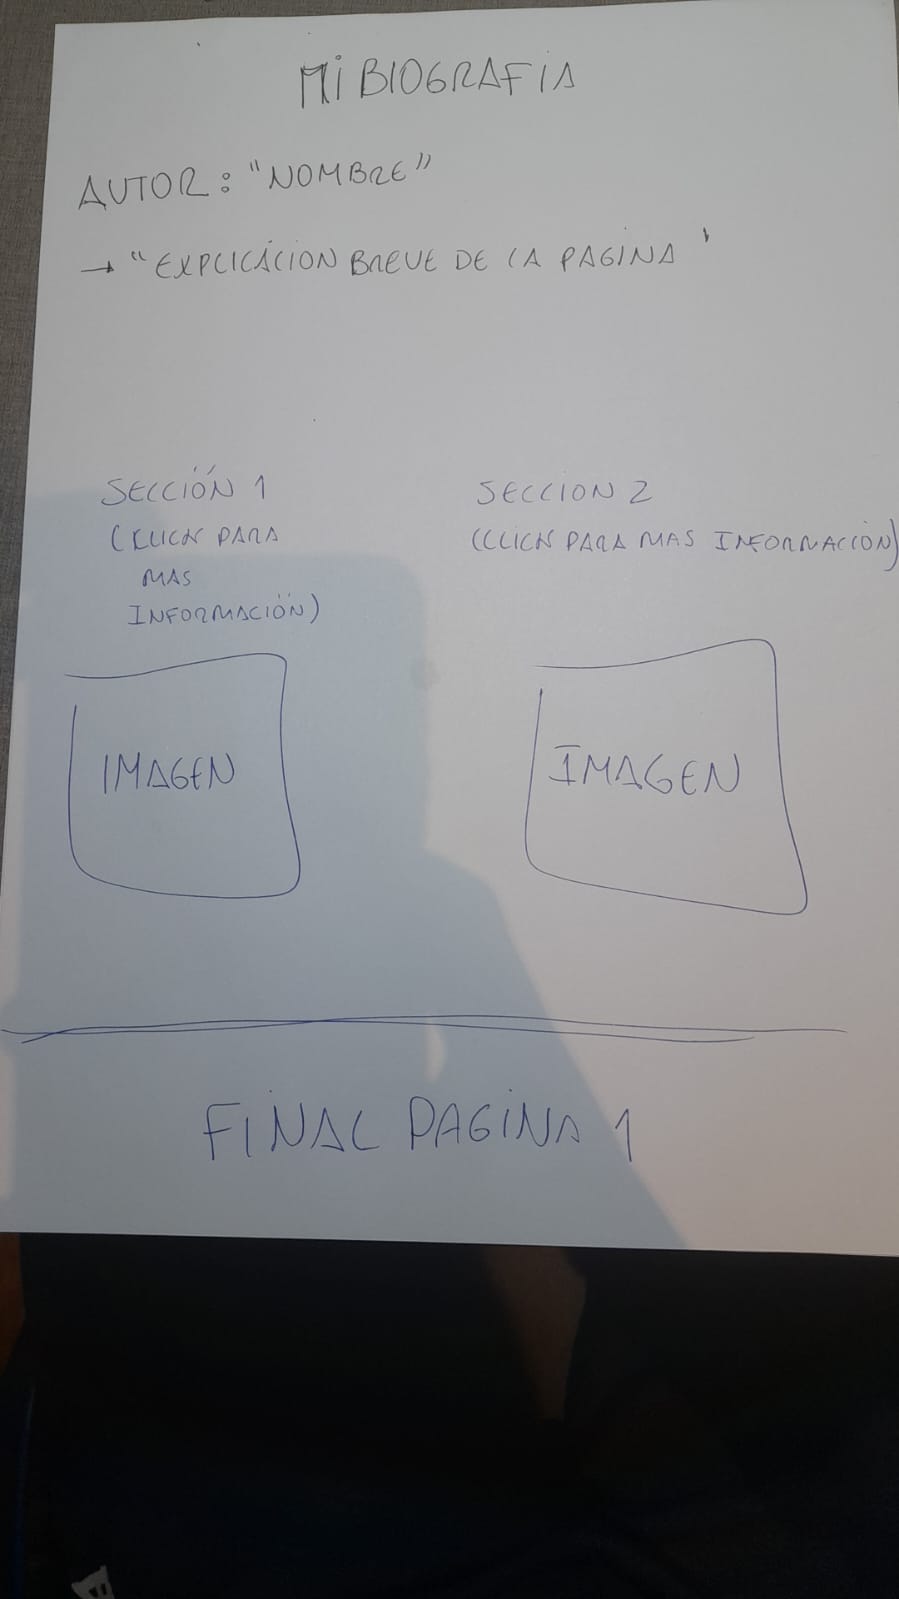 MI BIOGRAFIA
AUTOR: "NOMBRE"
→ "EXPLICACION BREVE DE LA PAGINA'
SECCIÓN 1
(CLICK PARA
MAS
INFORMACIÓN)
SECCION 2
(CLICK PARA MAS INFORMACIÓN)
IMAGEN
IMAGEN
FINAL PAGINA 1